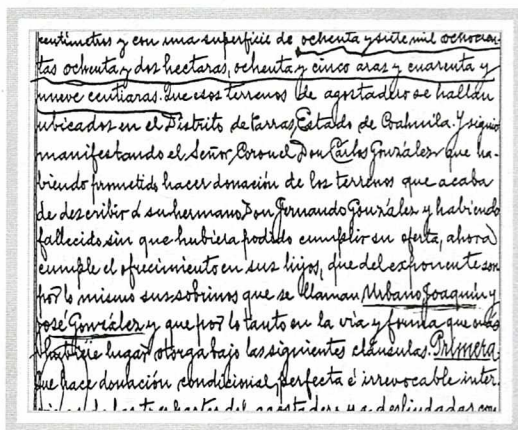 centimetros y con una superficie de ochenta y siete mil ochocien-
tas ochenta y dos hectaras, ochenta y cinco aras y cuarenta y
nueve centiaras. Que esos terrenos de agostadero se hallan
ubicados en el Distrito de Parras, Estado de Coahuila. Y siguió
manifestando el Señor Coronel Don Carlos González que ha-
biendo prometido hacer donación de los terrenos que acaba
de describir á su hermano Don Fernando González y habiendo
fallecido sin que hubiera podido cumplir su oferta, ahora
cumple el ofrecimiento en sus hijos, que del exponente son
por lo mismo sus sobrinos que se llaman Urbano, Joaquin y
José González y que por lo tanto en la vía y forma que más
hubiere lugar otorga bajo las siguientes cláusulas. Primera
Que hace donación condicional, perfecta é irrevocable inter
del agostadero ya deslindadas con